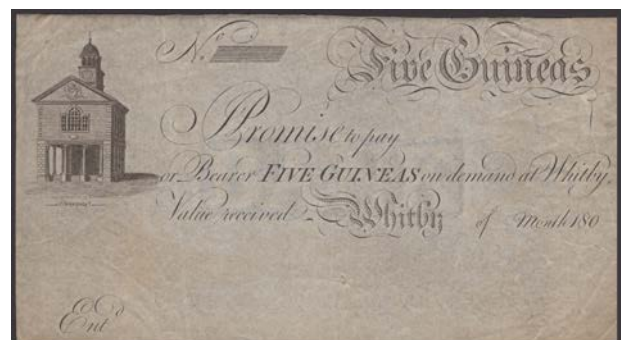 No.
Five Guineas
I Promise to pay
or Bearer FIVE GUINEAS on demand at Whitby,
Value received - Whitby of Month 180
Entd